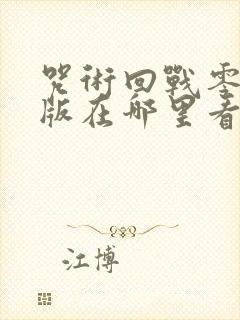 咒術回戰零
版在哪里看
江博